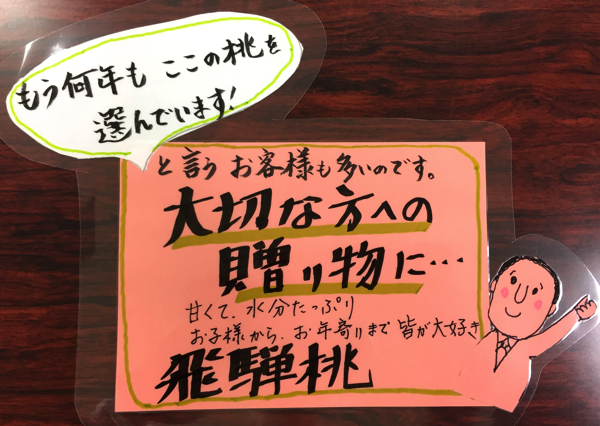 もう何年も ここの桃を
選んでいます!
と言う お客様も多いのです。
大切な方への
贈り物に…
甘くて、水分たっぷり
お子様から、お年寄りまで 皆が大好き
飛騨桃